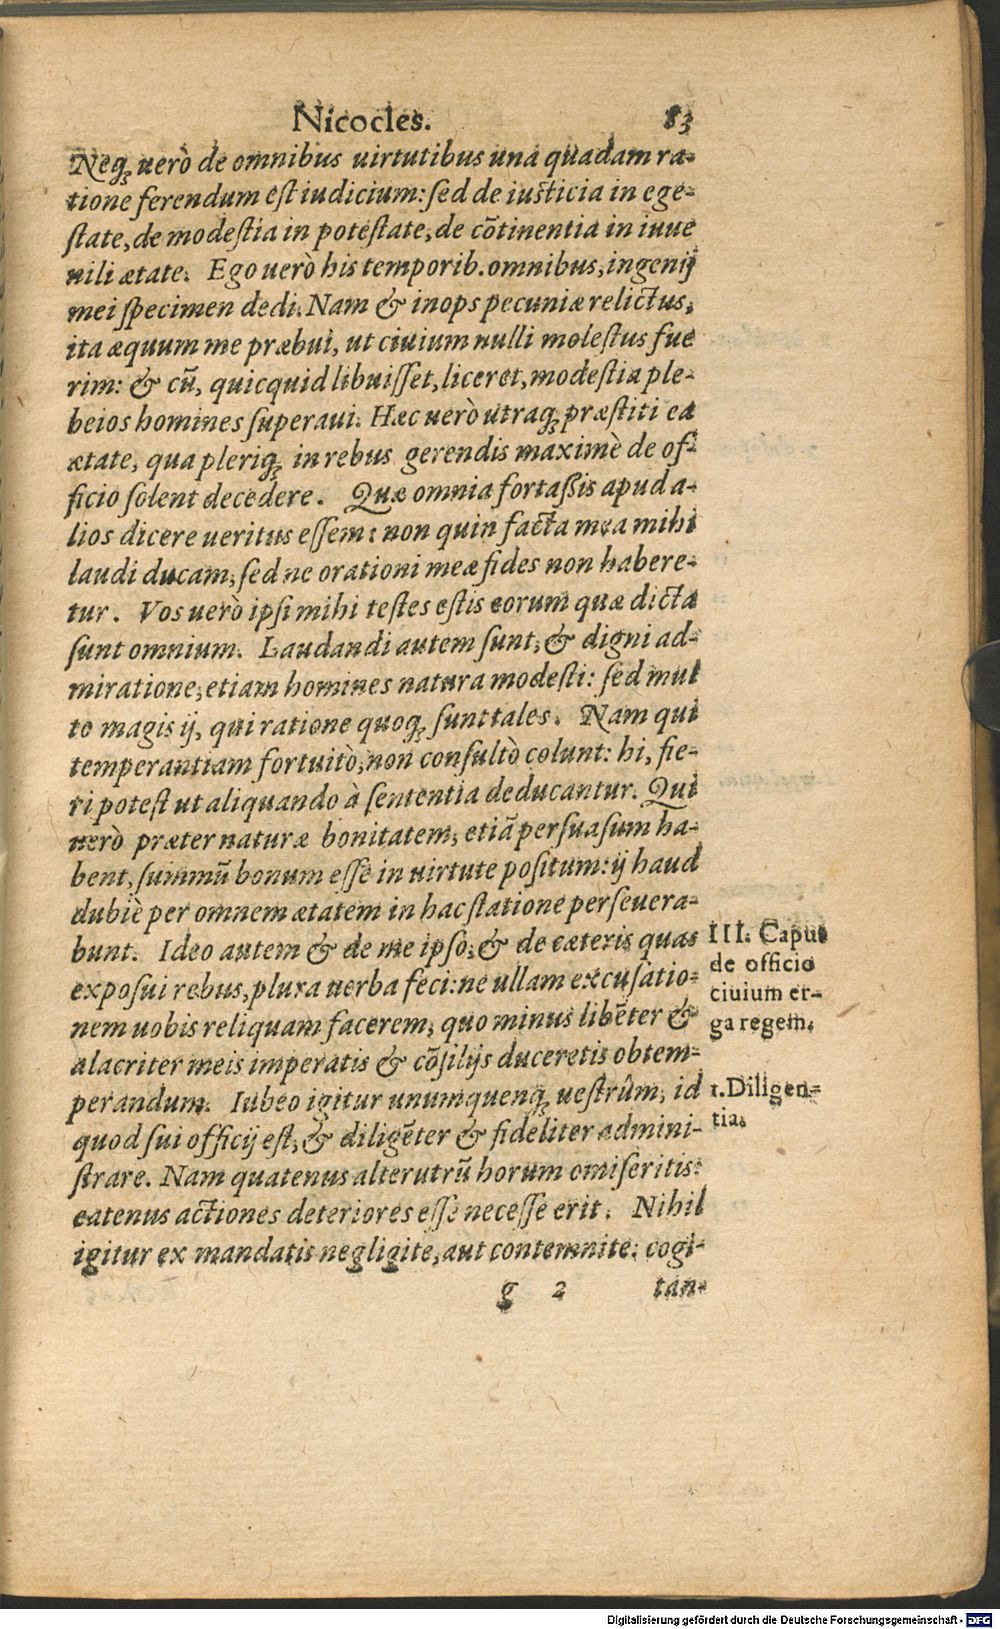 Nicocles. 83
Neqꝫ uerò de omnibus uirtutibus una quadam ra-
tione ferendum est iudicium: sed de iusticia in ege-
state, de modestia in potestate, de cōtinentia in iuue
nili ætate. Ego uerò his temporib. omnibus, ingenij
mei specimen dedi. Nam & inops pecuniæ relictus,
ita æquum me præbui, ut ciuium nulli molestus fue
rim: & cū, quicquid libuisset, liceret, modestia ple-
beios homines superaui. Hæc uerò utraqꝫ præstiti ea
ætate, qua pleriqꝫ in rebus gerendis maximè de of-
ficio solent decedere. Quæ omnia fortaßis apud a-
lios dicere ueritus essem: non quin facta mea mihi
laudi ducam, sed ne orationi meæ fides non habere-
tur. Vos uerò ipsi mihi testes estis eorum quæ dicta
sunt omnium. Laudandi autem sunt, & digni ad-
miratione, etiam homines natura modesti: sed mul
to magis ij, qui ratione quoqꝫ sunt tales. Nam qui
temperantiam fortuitò, non consultò colunt: hi, fie-
ri potest ut aliquando à sententia deducantur. Qui
uerò præter naturæ bonitatem, etiā persuasum ha-
bent, summū bonum esse in uirtute positum: ij haud
dubiè per omnem ætatem in hac statione perseuera-
bunt. Ideo autem & de me ipso, & de cæteris quas
exposui rebus, plura uerba feci: ne ullam excusatio-
nem uobis reliquam facerem, quo minus libēter &
alacriter meis imperatis & cōsilijs duceretis obtem-
perandum. Iubeo igitur unumquenqꝫ uestrûm, id
quod sui officij est, & diligēter & fideliter admini-
strare. Nam quatenus alterutrū horum omiseritis:
eatenus actiones deteriores esse necesse erit. Nihil
igitur ex mandatis negligite, aut contemnite: cogi-
g 2 tan-
III. Caput
de officio
ciuium er-
ga regem.
1. Diligen-
tia.
Digitalisierung gefördert durch die Deutsche Forschungsgemeinschaft - DFG